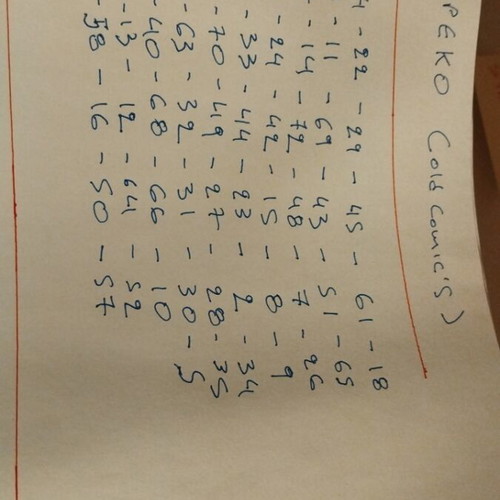 PEKO (old comic's)
- 22 - 29 - 45 - 61 - 18
- 11 - 69 - 43 - 51 - 65
- 14 - 72 - 48 - 7 - 26
- 24 - 42 - 15 - 8 - 9
- 33 - 44 - 23 - 2 - 34
- 70 - 49 - 27 - 28 - 35
- 63 - 32 - 31 - 30 - 5
- 40 - 68 - 66 - 10
- 13 - 12 - 64 - 52
- 58 - 16 - 50 - 57